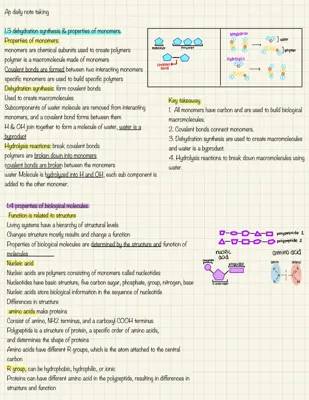 Ap daily note taking
1.3 dehydration synthesis & properties of monomers.
Properties of monomers:
monomers are chemical subunits used to create polymers
polymer is a macromolecule made of monomers
Covalent bonds are formed between two interacting monomers
specific monomers are used to build specific polymers
Dehydration synthesis: form covalent bonds
Used to create macromolecules
Subcomponents of water molecule are removed from interacting
monomers, and a covalent bond forms between them
H & OH join together to form a molecule of water, water is a
byproduct
Hydrolysis reactions: break covalent bonds
polymers are broken down into monomers
covalent bonds are broken between the monomers
water Molecule is hydrolyzed into H and OH, each sub component is
added to the other monomer.
monomer
Polymer
covalent
bond
dehydration
water
polymer
hydrolysis
Key takeaway:
1. All monomers have carbon and are used to build biological
macromolecules.
2. Covalent bonds connect monomers.
3. Dehydration synthesis are used to create macromolecules
and water is a byproduct
4. Hydrolysis reactions to break down macromolecules using
water.
1.4 properties of biological molecules
Function is related to structure
Living systems have a hierarchy of structural levels
Changes structure mostly results and change a function
Properties of biological molecules are determined by the structure and function of
molecules
Nucleic acid
Nucleic acids are polymers consisting of monomers called nucleotides
Nucleotides have basic structure, five carbon sugar, phosphate, group, nitrogen, base
Nucleic acids store biological information in the sequence of nucleotide
Differences in structure
amino acids make proteins
Consist of amino, NH2 terminus, and a carboxyl COOH terminus
Polypeptide is a structure of protein, a specific order of amino acids,
and determines the shape of proteins
Amino acids have different R groups, which is the atom attached to the central
carbon
R group, can be hydrophobic, hydrophilic, or ionic
Proteins can have different amino acid in the polypeptide, resulting in differences in
structure and function
polypeptide 1
polypeptide 2
nucleic
acid
amino acid